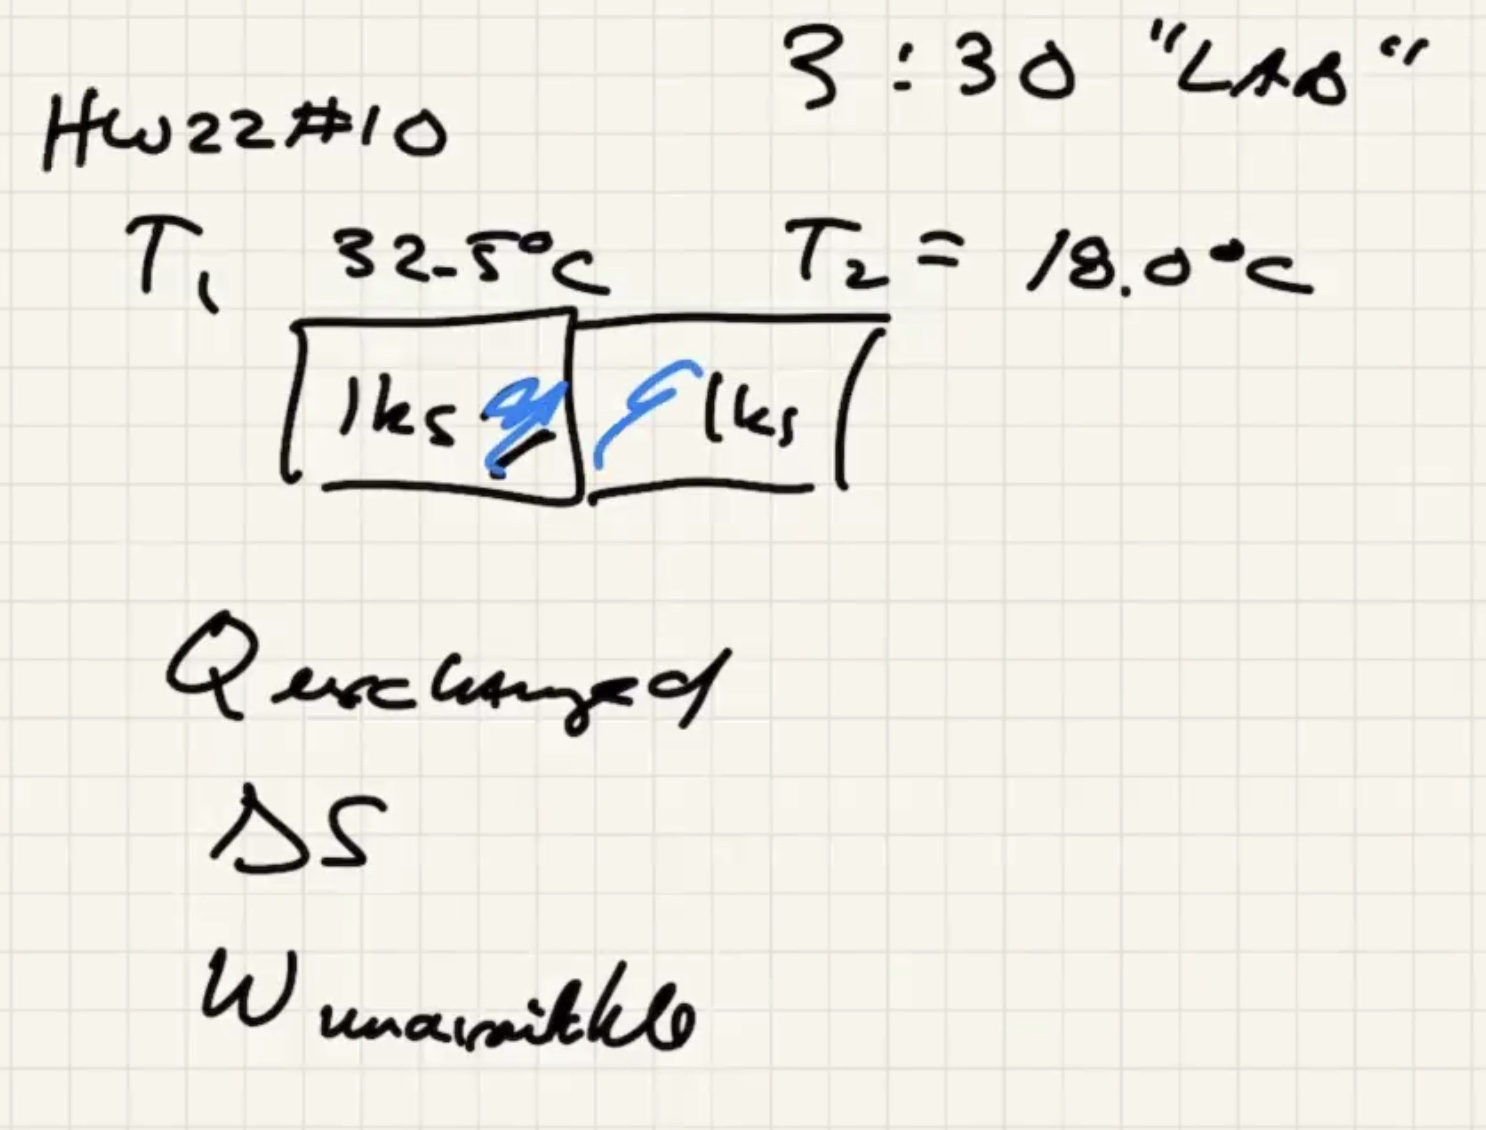 3:30 "LAB"
HW22#10
T₁ 32.5°C T₂ = 18.0°C
1kg 1kg
Q exchanged
ΔS
W unavailable